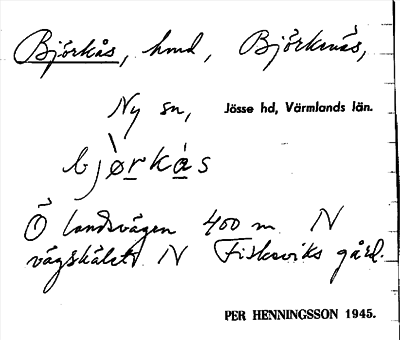 Björkås, hmd, Björknäs,
Ny sn, Jösse hd, Värmlands län.
bjørkås
Ö landsvägen 400 m N
vägskälet N Fisksviks gård.
PER HENNINGSSON 1945.